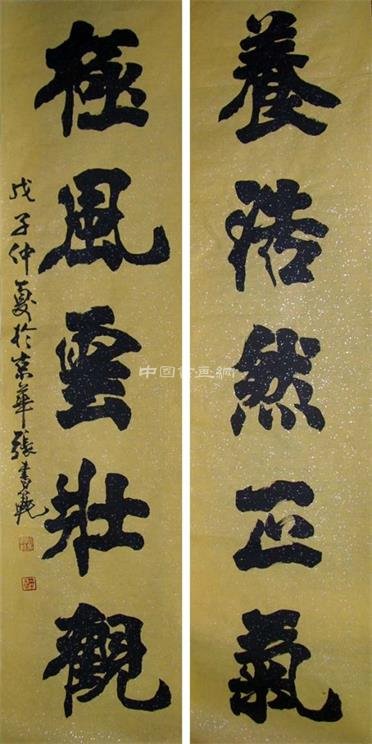 養浩然正氣
極風雲壯觀
戊子仲夏於京華張書範
中国书画網